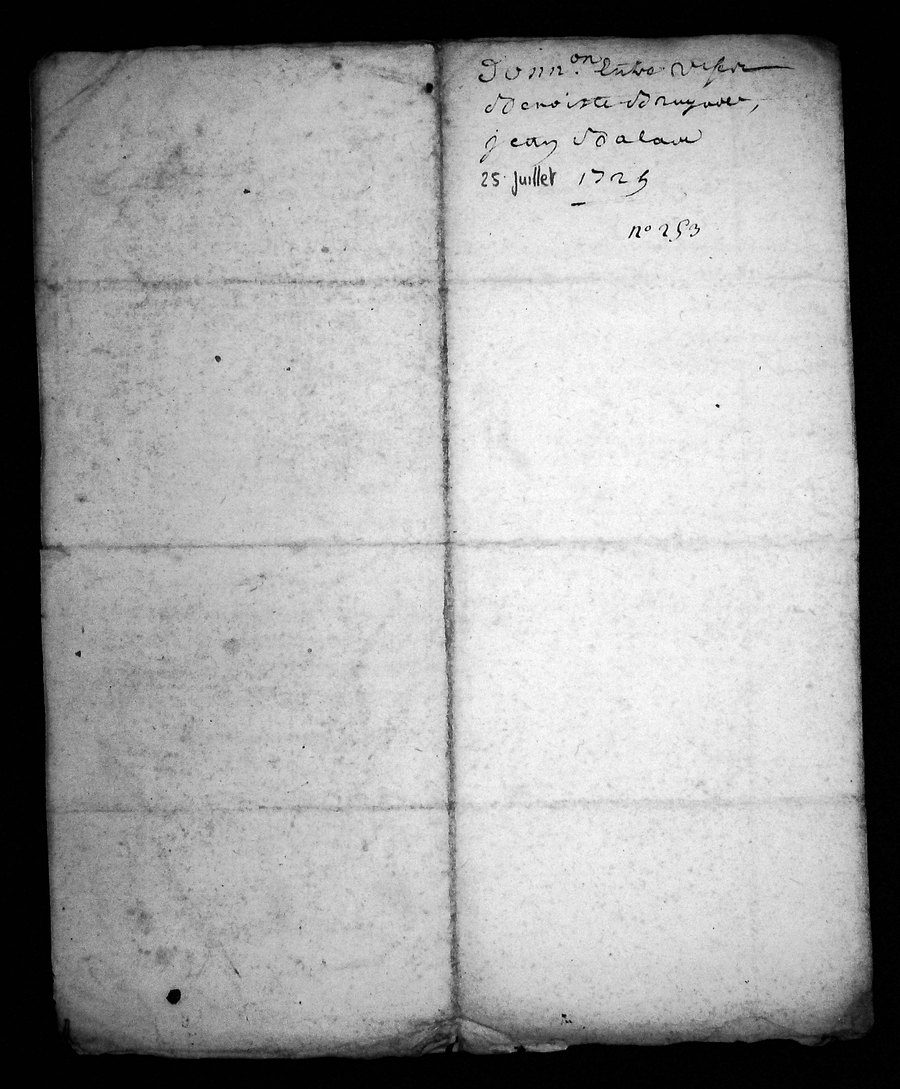 Donn.on Entre vifs
Benoiste Bruyere,
jean Balan
25 Juillet 1725
no 253